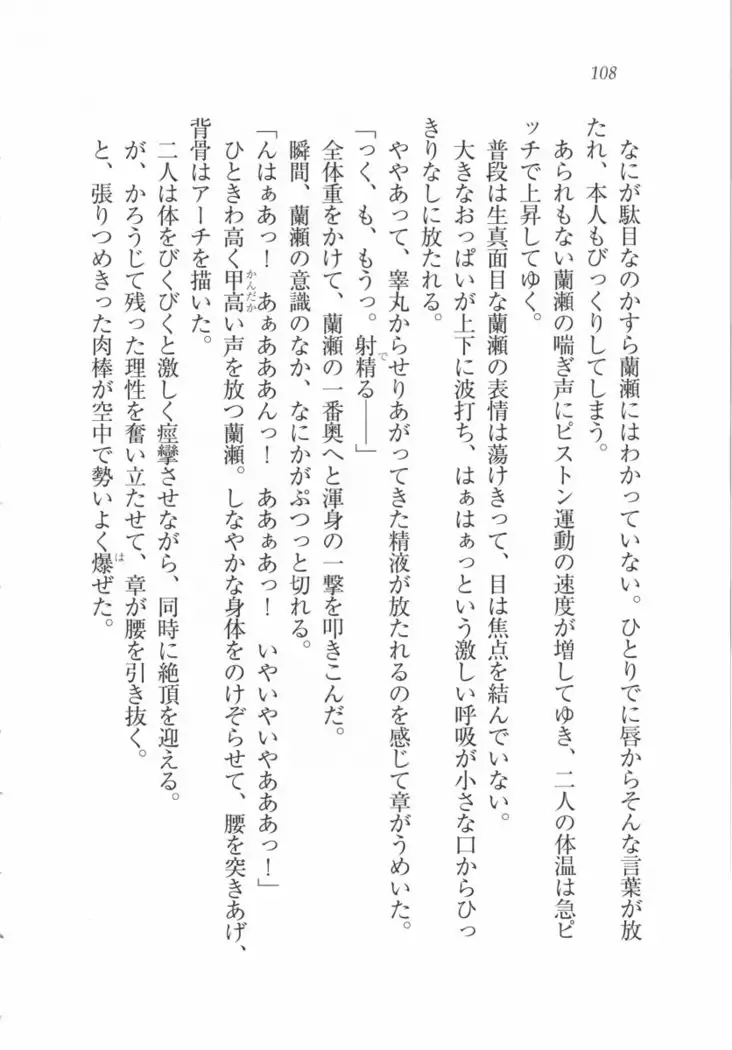 108
なにが駄目なのかすら蘭瀬にはわかっていない。ひとりでに唇からそんな言葉が放
たれ、本人もびっくりしてしまう。
あられもない蘭瀬の喘ぎ声にピストン運動の速度が増してゆき、二人の体温は急ピ
ッチで上昇してゆく。
普段は生真面目な蘭瀬の表情は蕩けきって、目は焦点を結んでいない。
大きなおっぱいが上下に波打ち、はぁはぁっという激しい呼吸が小さな口からひっ
きりなしに放たれる。
ややあって、睾丸からせりあがってきた精液が放たれるのを感じて章がうめいた。
で
「っく、も、もうっ。射精る――」
全体重をかけて、蘭瀬の一番奥へと渾身の一撃を叩きこんだ。
瞬間、蘭瀬の意識のなか、なにかがぷつっと切れる。
「んはぁあっ！　あぁあああんっ！　ああぁあっ！　いやいやいやあああっ！」
かんだか
ひときわ高く甲高い声を放つ蘭瀬。しなやかな身体をのけぞらせて、腰を突きあげ、
背骨はアーチを描いた。
二人は体をびくびくと激しく痙攣させながら、同時に絶頂を迎える。
が、かろうじて残った理性を奮い立たせて、章が腰を引き抜く。
は
と、張りつめきった肉棒が空中で勢いよく爆ぜた。